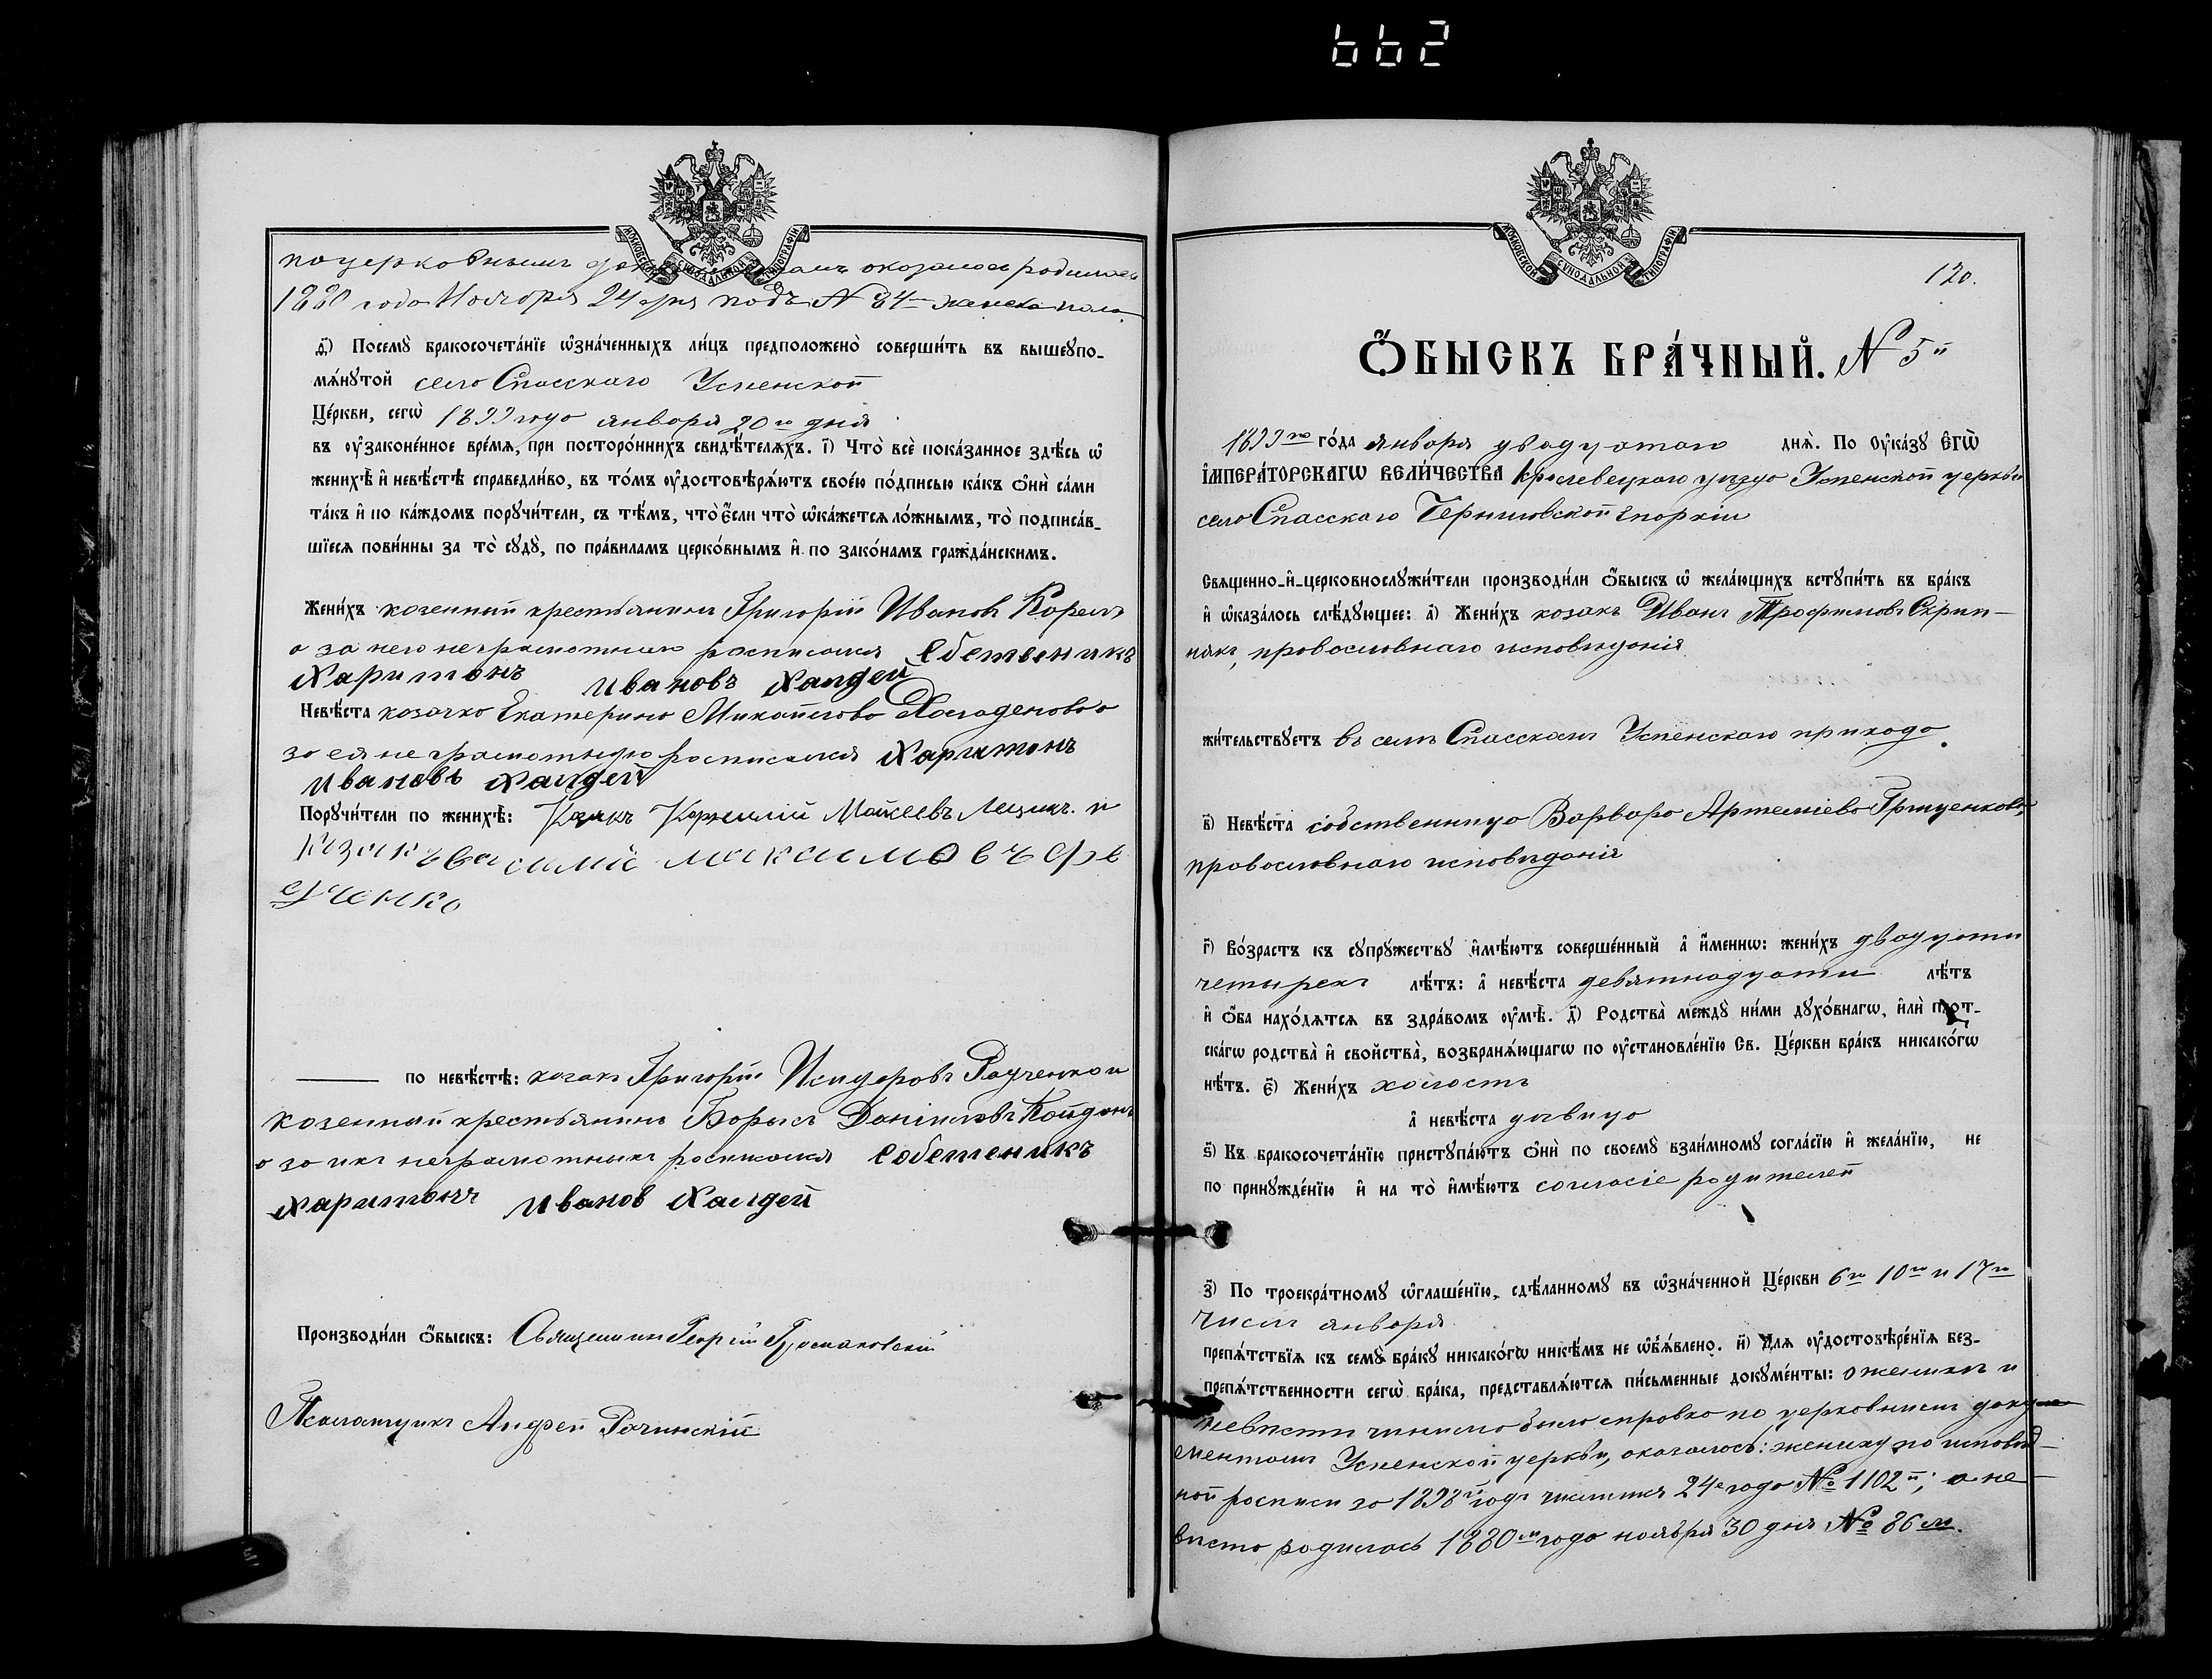 662
МОСКОВСКОЙ СѴНОДАЛЬНОЙ ТИПОГРАФІИ
по церковнымъ оказалось родилась
1880 года Ноября 24 дня подъ № 84 женска пола.
д҃і) Посемꙋ̀ бракосочета́нїе ѡ҆зна́ченныхъ ли́цъ предположено̀ соверши́ть въ вышеꙋпо-
мѧ́нꙋтой села Спасскаго Успенской
Це́ркви, сегѡ̀ 1899 года января 20го дня
въ ᲂу҆законе́нное вре́мѧ, при посторо́ннихъ свидѣ́телѧхъ. і҃) Что̀ всѐ пока́занное здѣ́сь ѡ҆
женихѣ̀ и҆ невѣ́стѣ справедли́во, въ то́мъ ᲂу҆достовѣрѧ́ютъ свое́ю по́дписью ка́къ ѻ҆нѝ са́ми
та́къ и҆ по ка́ждомъ порꙋчи́тели, съ тѣ́мъ, что̀ є҆́сли что̀ ѡ҆ка́жетсѧ ло́жнымъ, то̀ подписа́в-
шїесѧ пови́нны за то̀ сꙋдꙋ̀, по пра́виламъ церко́внымъ и҆ по зако́намъ гражда́нскимъ.
Жени́хъ казенный крестьянинъ Григорій Иванов Корень
а за него неграмотнаго росписался Собственикъ
Харитонъ Ивановъ Халдей
Невѣ́ста козачка Екатерина Михайлова
за ея неграмотную росписался Харитонъ
Ивановъ Халдей
Порꙋчи́тели по женихѣ̀: Козакъ Корнилій Мойсеевъ Лещикъ. и
Козакъ Василий максимовъ
по невѣ́стѣ: козакъ Григорій Исидоровъ Радченко и
козенный крестьянинъ Борисъ Даниловъ
а за ихъ неграмотныхъ росписался Собственикъ
Харитонъ Иванов Халдей
Производи́ли ѻ҆́быскъ: Священникъ Георгій
Псаломщикъ Андрей Рачинскій
МОСКОВСКОЙ СѴНОДАЛЬНОЙ ТИПОГРАФІИ
120.
Ѻ҆́БЫСКЪ БРА́ЧНЫЙ. № 5й
1899го го́да января двадцатаго днѧ̀. По Оу҆ка́зꙋ Є҆гѡ̀
І҆мпера́торскагѡ Вели́чества Кролевецкаго уѣзда Успенской церкви
села Спасскаго Черниговской Епархіи
Свѧщенно-и҆-церковнослꙋжи́тели производи́ли ѻ҆́быскъ ѡ҆ жела́ющихъ встꙋпи́ть въ бра́къ
и҆ ѡ҆каза́лось слѣ́дꙋющее: а҃) Жени́хъ козакъ Иванъ Трофимовъ Скрип-
никъ, православнаго исповѣданія
жи́тельствꙋетъ въ селѣ Спасскомъ Успенскаго прихода.
в҃) Невѣ́ста собственница Варвара Артеміева Гриценкова,
православнаго исповѣданія
г҃) Во́зрастъ къ сꙋпрꙋ́жествꙋ и҆мѣ́ютъ соверше́нный а҆ и҆́меннѡ: жени́хъ двадцати
четырехъ лѣ́тъ: а҆ невѣ́ста девятнадцати лѣ́тъ
и҆ ѻ҆́ба нахо́дѧтсѧ въ здра́вомъ ᲂу҆мѣ̀. д҃) Родства̀ междꙋ̀ ни́ми дꙋхо́внагѡ, и҆лѝ плот-
ска́гѡ родства̀ и҆ сво́йства̀, возбранѧ́ющагѡ по ᲂу҆становле́нїю Св. Це́ркви бра́къ никако́гѡ
нѣ́тъ. є҃) Жени́хъ холостъ
а҆ невѣ́ста дѣвица
ѕ҃) Къ бракосочета́нїю пристꙋпа́ютъ ѻ҆нѝ по своемꙋ̀ взаи́мномꙋ согла́сїю и҆ жела́нїю, не
по принꙋжде́нїю и҆ на то̀ и҆мѣ́ютъ согласіе родителей
з҃) По троекра́тномꙋ ѡ҆глаше́нїю, сдѣ́ланномꙋ въ ѡ҆зна́ченной Це́ркви 6го 10го и 17го
числъ января
препѧ́тствїѧ къ семꙋ̀ бра́кꙋ никако́гѡ никѣ́мъ не ѡ҆б̾ѧ́влено. и҃) Длѧ ᲂу҆достовѣре́нїѧ без-
препѧ́тственности сегѡ̀ бра́ка, представлѧ́ютсѧ пи́сьменные докꙋме́нты: о женихѣ и
невѣстѣ чинима была справка по церковнымъ доку-
ментамъ Успенской церкви, оказалось: жениху по исповѣд-
ной росписи за 1898й годъ числится 24 года № 1102й; а не-
вѣста родилась 1880м года ноября 30 дня № 86м.